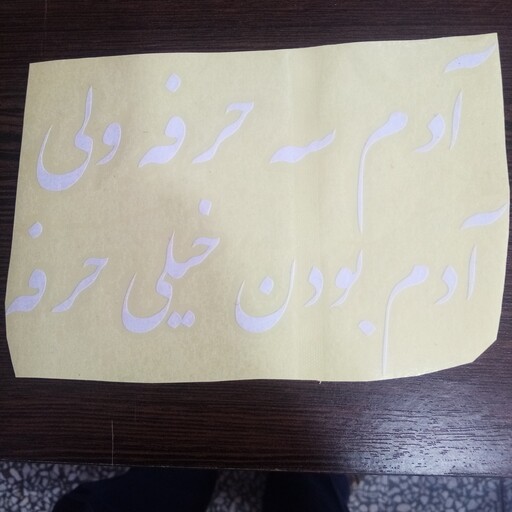 آدم سه حرفه ولی
آدم بودن خیلی حرفه